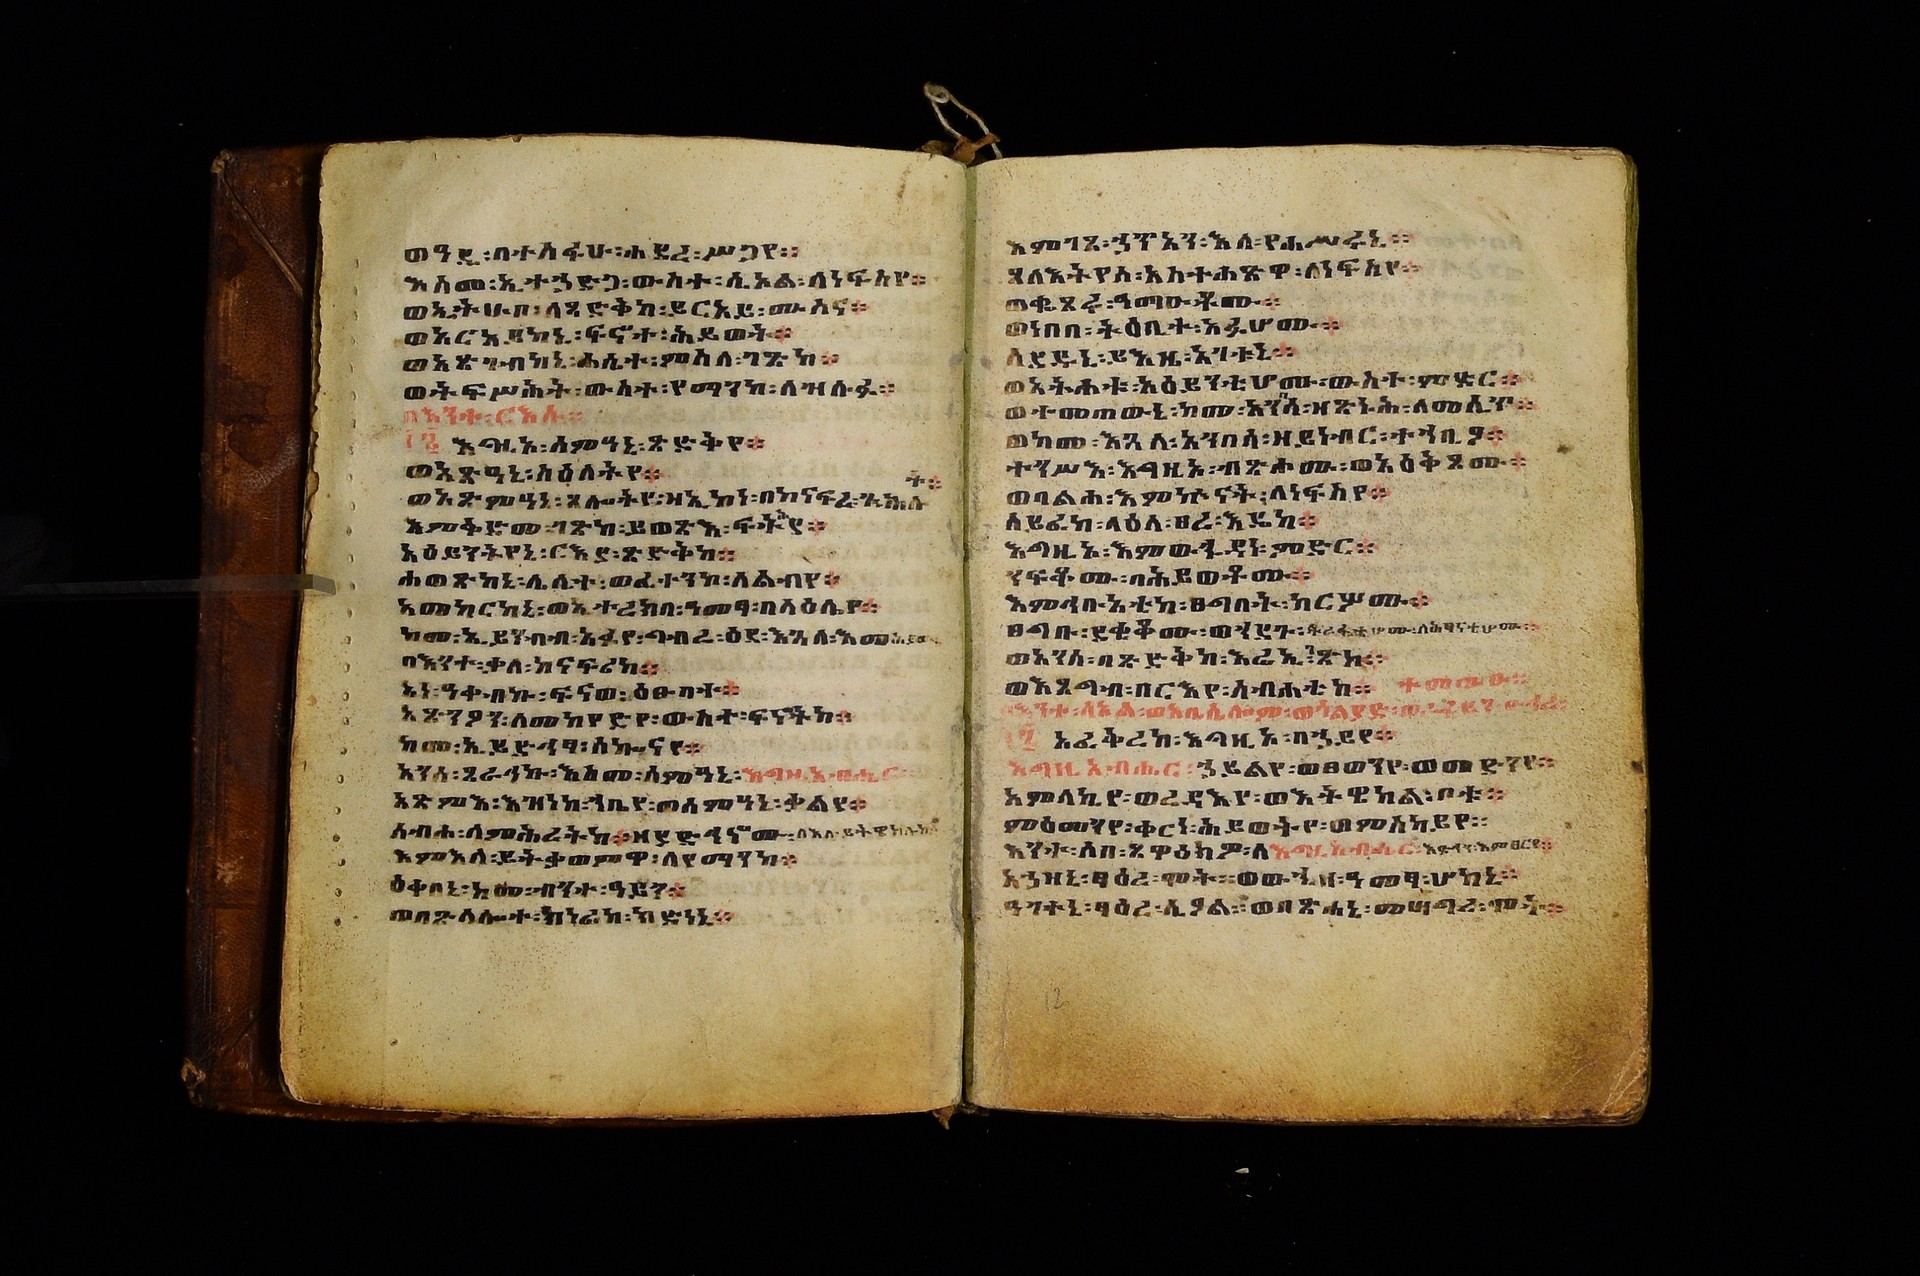 ወዓዲ፡በተስፋሁ፡ሐደረ፡ሥጋየ።
እስመ፡ኢተኃድጋ፡ውስተ፡ሲኦል፡ለነፍስየ።
ወኢትሁቦ፡ለጻድቅከ፡ይርአይ፡ሙስና።
ወአርአይከኒ፡ፍኖተ፡ሕይወት።
ወአጽገብከኒ፡ሐሤተ፡ምስለ፡ገጽከ።
ወትፍሥሕት፡ውስተ፡የማንከ፡ለዝሉፉ።
በእንተ፡ርእሱ።
፲፮ እግዚኦ፡ስምዓኒ፡ጽድቅየ።
ወአጽዓኒ፡ስዕለትየ።
ወአጽምዓኒ፡ጸሎትየ፡ዘኢኮነ፡በከናፍረ፡ጉሕሉት።
እምቅድመ፡ገጽከ፡ይወጽእ፡ፍትሕየ።
አዕይንትየኒ፡ርእያ፡ጽድቅከ።
ሐወጽከኒ፡ሌሊተ፡ወፈተንኮ፡ለልብየ።
አመከርከኒ፡ወኢተረክበ፡ዓመፃ፡በላዕሌየ።
ከመ፡ኢይንብብ፡አፉየ፡ግብረ፡ዕደ፡እጓለ፡እመሕያው።
በእንተ፡ቃለ፡ከናፍሪከ።
አነ፡ዓቀብኩ፡ፍናወ፡ዕፁባተ።
አጽንዖን፡ለመከየድየ፡ውስተ፡ፍኖትከ።
ከመ፡ኢይድኃፃ፡ሰኰናየ።
አንሰ፡ጸራኅኩ፡እስመ፡ሰምዓኒ፡እግዚአብሔር።
አጽምእ፡እዝነከ፡ኀቤየ፡ወስምዓኒ፡ቃልየ።
ሰብሐ፡ለምሕረትከ።ዘያድኅኖሙ፡ለእለ፡ይትዌከሉከ።
እምእለ፡ይትቃወምዋ፡ለየማንከ።
ዕቀበኒ፡ከመ፡ብንተ፡ዓይን።
ወበጽላሎተ፡ክነፊከ፡ክድነኒ።
እምገጸ፡ኃጥአን፡እለ፡የሐሥሩኒ።
ጸላእትየሰ፡አስተሐጽዋ፡ለነፍስየ።
ወቈጸሩ፡ዓማውቶሙ።
ወነበበ፡ትዕቢተ፡አፉሆሙ።
ሰደዱኒ፡ይእዜ፡አገቱኒ።
ወአትሐቱ፡አዕይንቲሆሙ፡ውስተ፡ምድር።
ወተመጠውኒ፡ከመ፡አንበሳ፡ዘጽኑሕ፡ለመሢጥ።
ወከመ፡እጓለ፡አንበሳ፡ዘይነብር፡ተኀቢዖ።
ተንሥእ፡እግዚኦ፡ብጽሖሙ፡ወአዕቅጾሙ።
ወባልሐ፡እምኵናት፡ለነፍስየ።
ሰይፈከ፡ላዕለ፡ፀረ፡እዴከ።
እግዚኦ፡እምውኁዳነ፡ምድር።
ንፍቆሙ፡በሕይወቶሙ።
እምኅቡአቲከ፡ፀግበት፡ከርሦሙ።
ፀግቡ፡ደቂቆሙ፡ወኀደጉ፡ትራፋቲሆሙ፡ለሕፃናቲሆሙ።
ወአንሰ፡በጽድቅከ፡እሬኢ፡ገጽከ።
ወእጸግብ፡በርእየ፡ስብሐቲከ።
በእንተ፡ሳኦል፡ወአቤሴሎም፡ወጎልያድ፡
፲፯ አፈቅረከ፡እግዚኦ፡በኃይየ።
እግዚአብሔር፡ኃይልየ፡ወፀወንየ፡ወመድኅንየ።
አምላኪየ፡ወረዳእየ፡ወእትዌከል፡ቦቱ።
ምዕመንየ፡ቀርነ፡ሕይወትየ፡ወምስካይየ።
እንተ፡ሰበ፡ጸዋዕክዎ፡ለእግዚአብሔር፡እድኅን፡እምፀርየ።
አኃዘኒ፡ፃዕረ፡ሞት።ወውኂዘ፡ዓመፃ፡ሆከኒ።
ዓገተኒ፡ፃዕረ፡ሲዖል።ወበጽሐኒ፡መሣግረ፡ሞት።
12